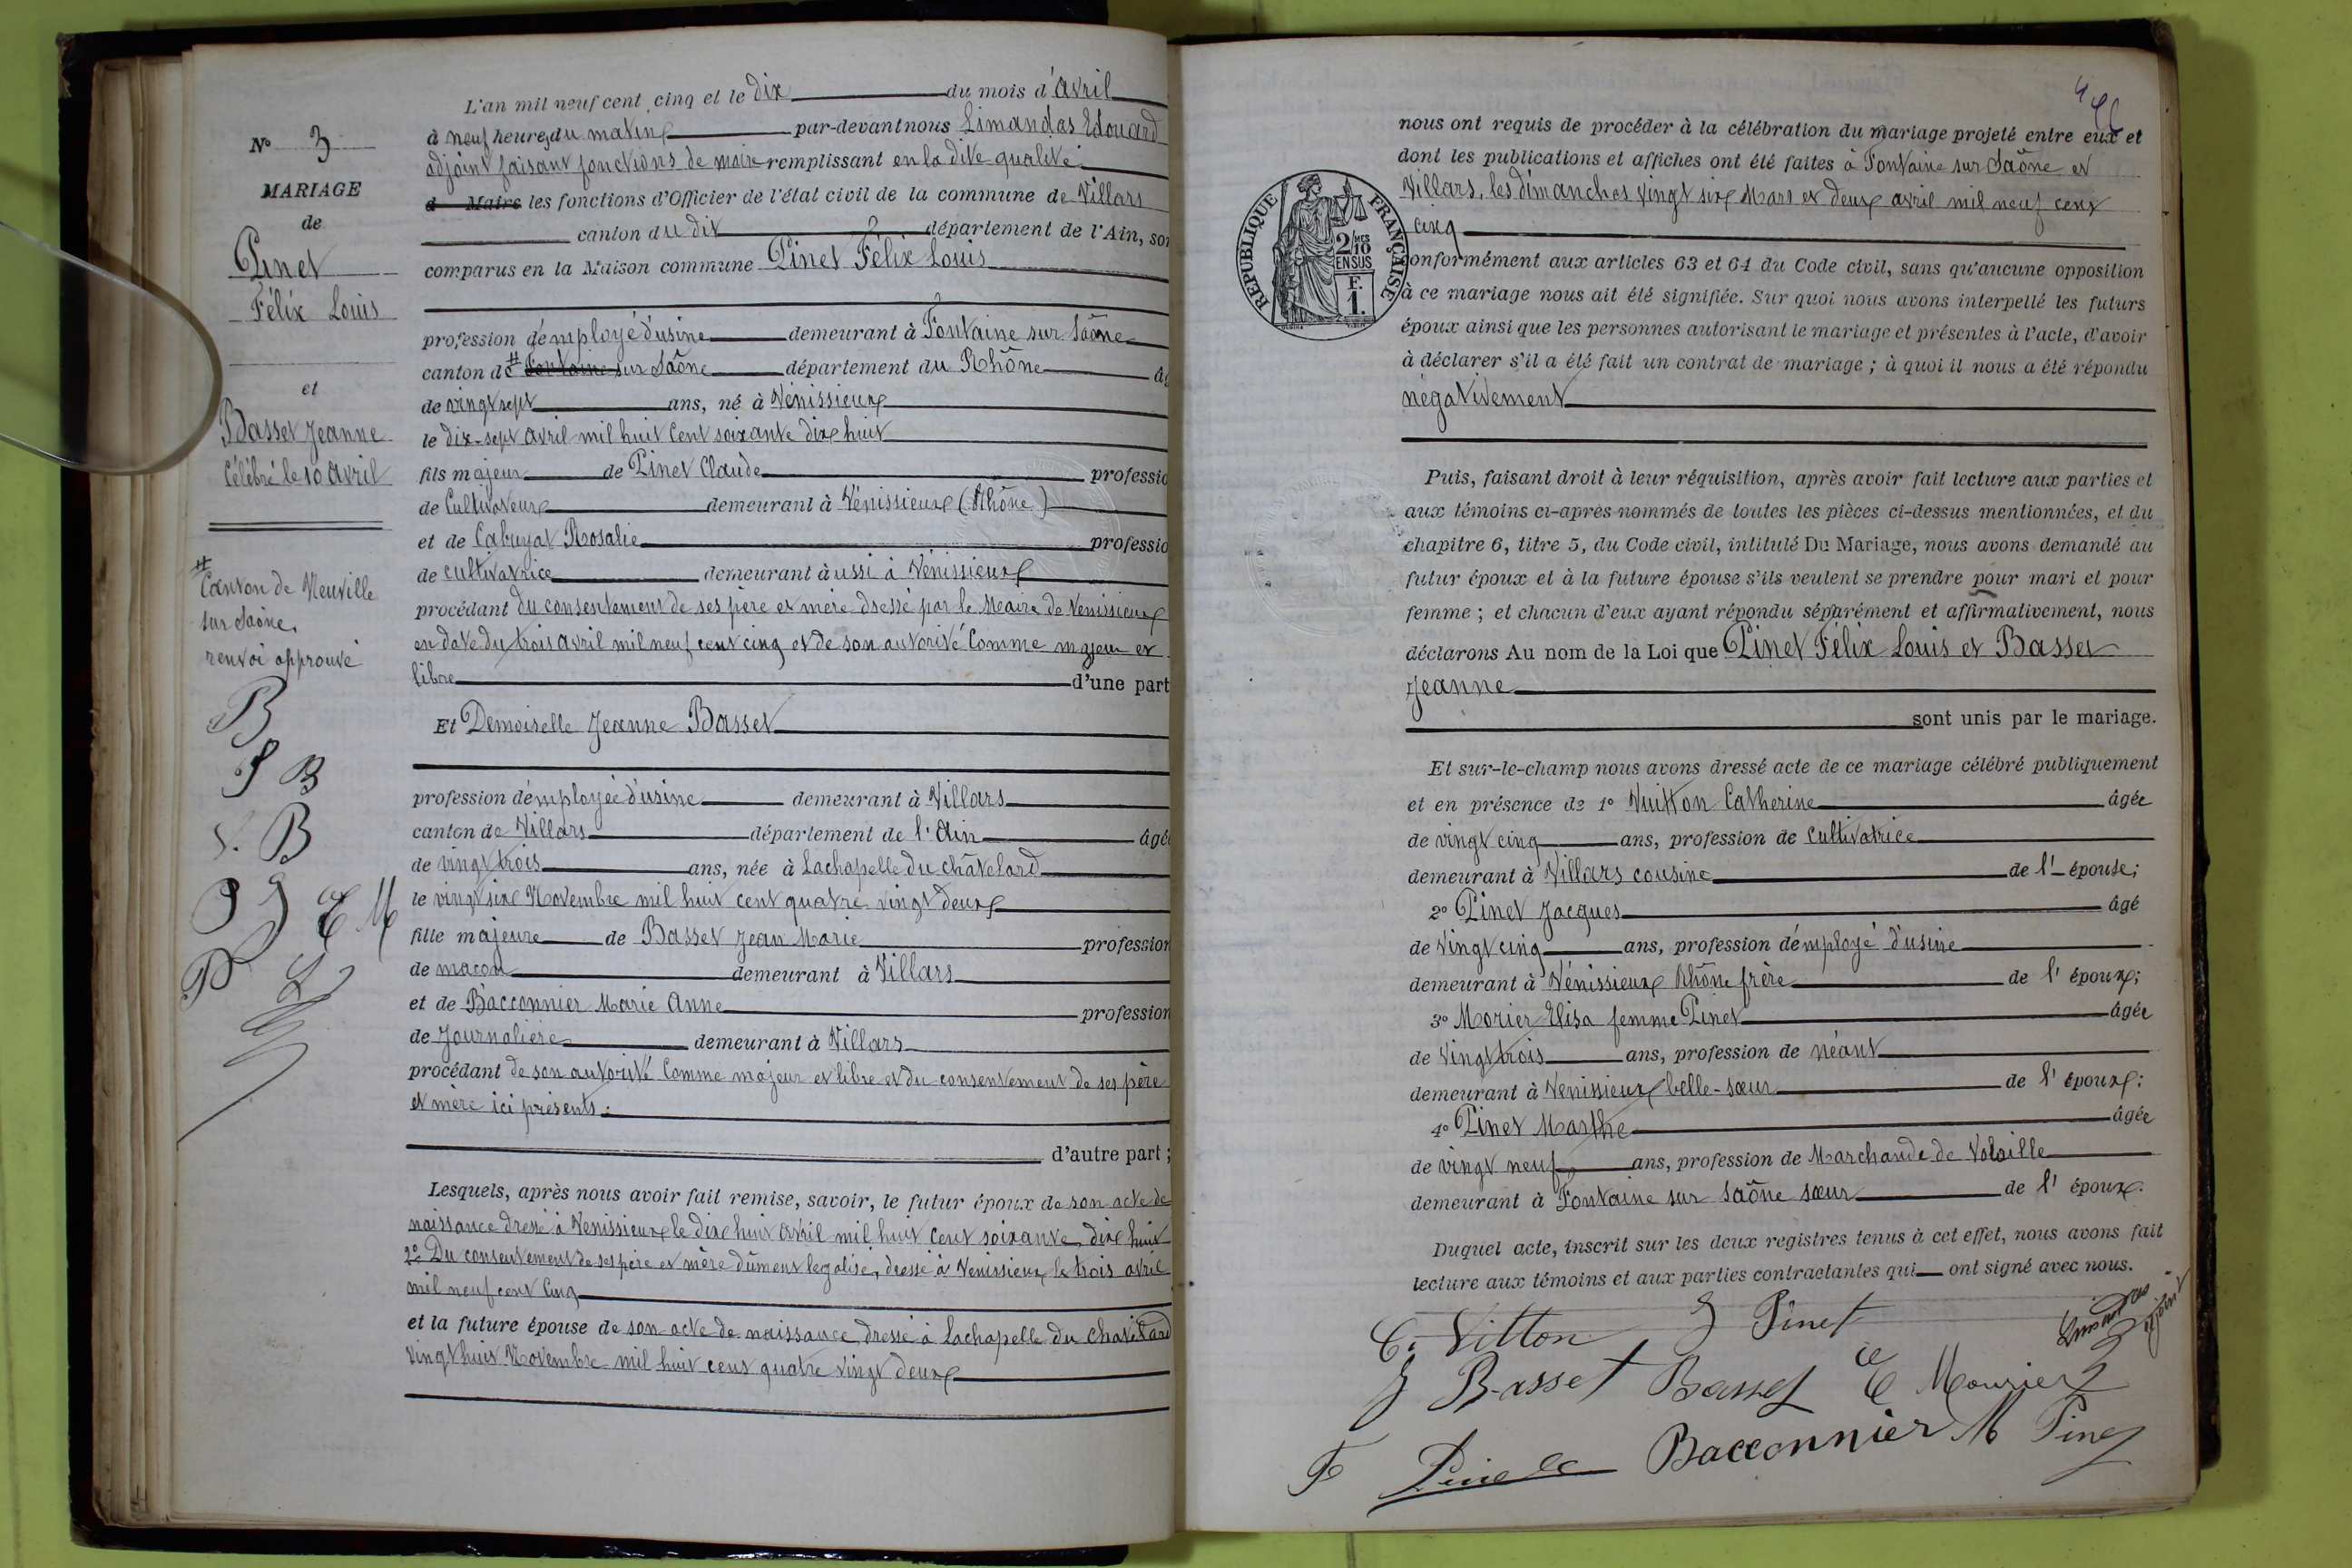 N° 3
MARIAGE
de
Pinet
Félix Louis
et
Basset Jeanne
Célébré le 10 avril
# Canton de Neuville
sur Saône.
renvoi approuvé
B
J B
V. B
P J E M
P
L'an mil neuf cent cinq et le dix du mois d'avril
à neuf heures du matin par-devant nous Limandas Edouard
adjoint faisant fonctions de maire remplissant en la dite qualité
d Maire les fonctions d'Officier de l'état civil de la commune de Villars
canton du dit département de l'Ain, son
comparus en la Maison commune Pinet Félix Louis
profession d'employé d'usine demeurant à Fontaine sur Saône
canton de # Fontaine sur Saône département du Rhône âg
de vingt sept ans, né à Vénissieux
le dix-sept avril mil huit cent soixante dix huit
fils majeur de Pinet Claude professio
de Cultivateur demeurant à Vénissieux (Rhône)
et de Cabuyat Rosalie professio
de cultivatrice demeurant aussi à Vénissieux
procédant du consentement de ses père et mère dressé par le Maire de Venissieux
en date du trois avril mil neuf cent cinq et de son autorité comme majeur et
libre d'une part
Et Demoiselle Jeanne Basset
profession d'employée d'usine demeurant à Villars
canton de Villars département de l'Ain âgé
de vingt trois ans, née à Lachapelle du châtelard
le vingt six Novembre mil huit cent quatre vingt deux
fille majeure de Basset Jean Marie profession
de maçon demeurant à Villars
et de Bacconnier Marie Anne profession
de Journalière demeurant à Villars
procédant de son autorité comme majeur et libre et du consentement de ses père
et mère ici présents.
d'autre part ;
Lesquels, après nous avoir fait remise, savoir, le futur époux de son acte de
naissance dressé à Venissieux le dix huit avril mil huit cent soixante dix huit
2° Du consentement de ses père et mère dûment legalisé, dressé à Venissieux le trois avril
mil neuf cent cinq
et la future épouse de son acte de naissance dressé à Lachapelle du chatelard
vingt huit Novembre mil huit cent quatre vingt deux
nous ont requis de procéder à la célébration du mariage projeté entre eux et
dont les publications et affiches ont été faites à Fontaine sur Saône et
Villars, les dimanches vingt six Mars et deux avril mil neuf cent
cinq
REPUBLIQUE FRANÇAISE
2/10 MES
EN SUS
F.
1.
conformément aux articles 63 et 64 du Code civil, sans qu'aucune opposition
à ce mariage nous ait été signifiée. Sur quoi nous avons interpellé les futurs
époux ainsi que les personnes autorisant le mariage et présentes à l'acte, d'avoir
à déclarer s'il a été fait un contrat de mariage ; à quoi il nous a été répondu
négativement
Puis, faisant droit à leur réquisition, après avoir fait lecture aux parties et
aux témoins ci-après nommés de toutes les pièces ci-dessus mentionnées, et du
chapitre 6, titre 5, du Code civil, intitulé Du Mariage, nous avons demandé au
futur époux et à la future épouse s'ils veulent se prendre pour mari et pour
femme ; et chacun d'eux ayant répondu séparément et affirmativement, nous
déclarons Au nom de la Loi que Pinet Félix Louis et Basset
Jeanne
sont unis par le mariage.
Et sur-le-champ nous avons dressé acte de ce mariage célébré publiquement
et en présence de 1° Vuitton Catherine âgée
de vingt cinq ans, profession de cultivatrice
demeurant à Villars cousine de l'épouse ;
2° Pinet Jacques âgé
de vingt cinq ans, profession d'employé d'usine
demeurant à Vénissieux Rhône frère de l'époux ;
3° Morier Elisa femme Pinet âgée
de vingt trois ans, profession de néant
demeurant à Venissieux belle-sœur de l'époux ;
4° Pinet Marthe âgée
de vingt neuf ans, profession de Marchande de Volaille
demeurant à Fontaine sur Saône sœur de l'époux.
Duquel acte, inscrit sur les deux registres tenus à cet effet, nous avons fait
lecture aux témoins et aux parties contractantes qui ont signé avec nous.
C. Vitton J Pinet Limandas adjoint
J Basset Basset E Mourier
F Pinet Bacconnier M Pinet